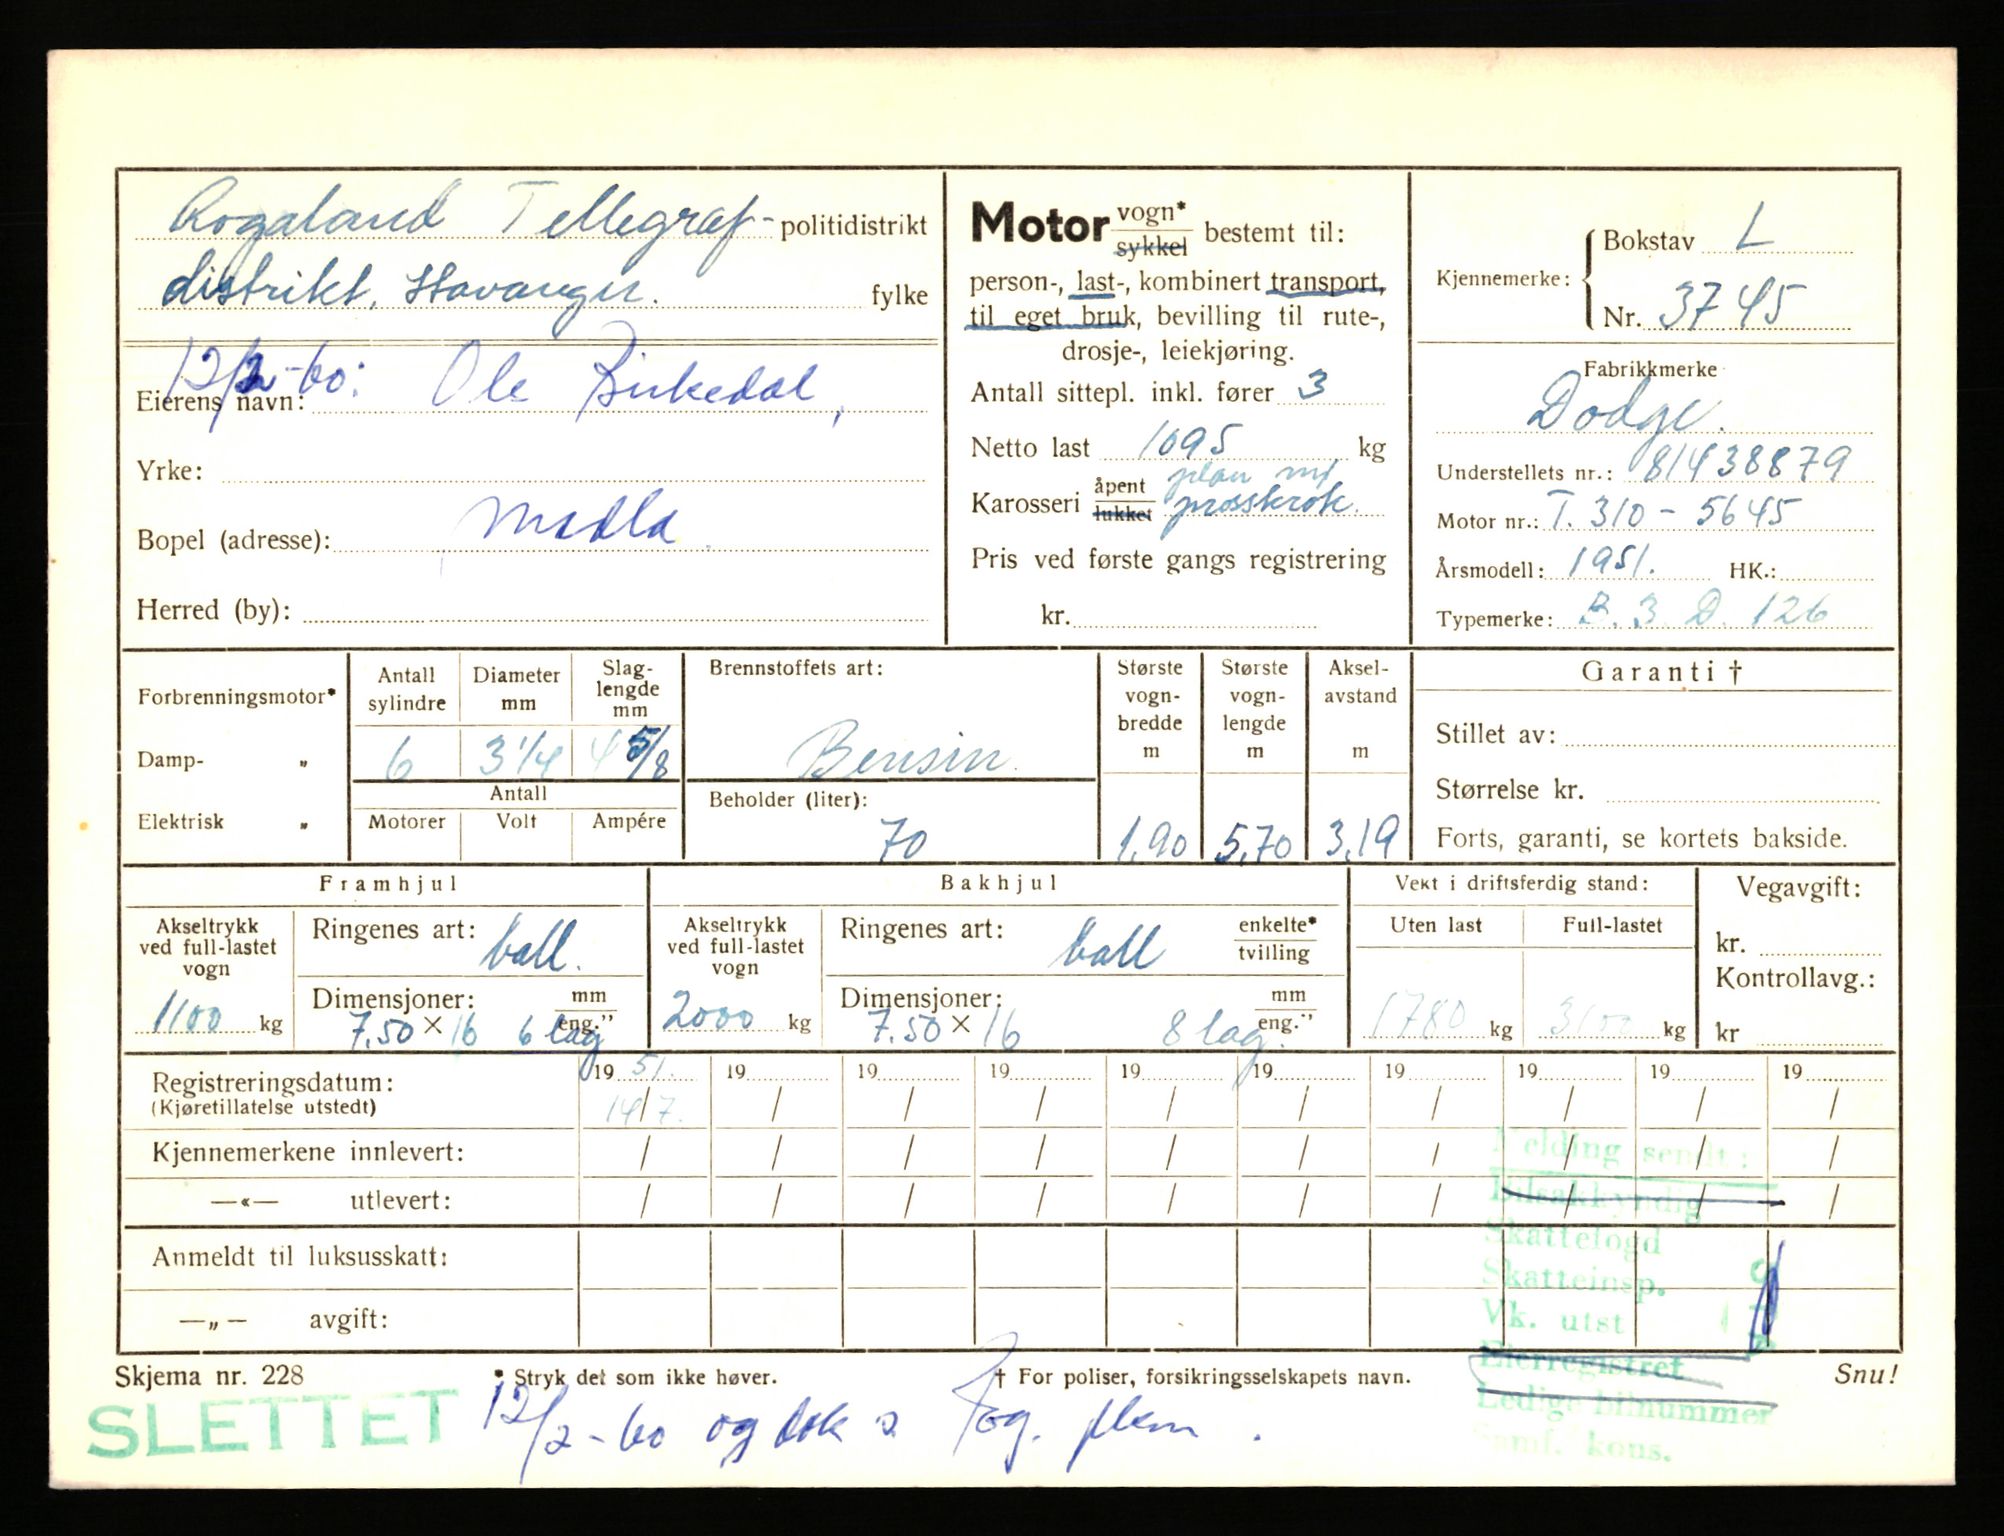 Rogaland Tellegraf- politidistrikt
distrikt, Stavanger. fylke
12/2-60: Ole Birkedal,
Eierens navn:
Yrke:
Bopel (adresse): Madla
Herred (by):
Motor vogn* sykkel bestemt til:
person-, last-, kombinert transport,
til eget bruk, bevilling til rute-,
drosje-, leiekjøring.
Antall sittepl. inkl. fører 3
Netto last 1095 kg
Karosseri åpent lukket plan m/ prosskrok.
Pris ved første gangs registrering
kr.
Kjennemerke: Bokstav L
Nr. 3745
Fabrikkmerke
Dodge.
Understellets nr.: 81438879
Motor nr.: T. 310 - 5645
Årsmodell: 1951. HK.:
Typemerke: B. 3. D. 126
Forbrenningsmotor*
Damp- „
Elektrisk „
Antall sylindre
6
Diameter mm
3 1/4
Slaglengde mm
4 5/8
Antall
Motorer Volt Ampére
Brennstoffets art:
Bensin
Beholder (liter):
70
Største vogn-bredde m
1,90
Største vogn-lengde m
5,70
Aksel-avstand m
3,19
Garanti †
Stillet av:
Størrelse kr.
Forts, garanti, se kortets bakside.
Framhjul
Akseltrykk ved full-lastet vogn
1100 kg
Ringenes art: ball.
Dimensjoner: mm eng."
7,50 × 16 6 lag
Bakhjul
Akseltrykk ved full-lastet vogn
2000 kg
Ringenes art: ball enkelte* tvilling
Dimensjoner: mm eng."
7.50 × 16 8 lag.
Vekt i driftsferdig stand:
Uten last Full-lastet
1780 kg 3100 kg
Vegavgift:
kr.
Kontrollavg.:
kr
Registreringsdatum: 19 51. 19 19 19 19 19 19 19 19 19
(Kjøretillatelse utstedt) 14/7. / / / / / / / / /
Kjennemerkene innlevert: / / / / / / / / / /
—«— utlevert: / / / / / / / / / /
Anmeldt til luksusskatt:
—„— avgift:
Melding sendt:
Bilsakkyndig
Skattefogd
Skatteinsp.
Vk. utst
Eierregistret
Ledige bilnummer
Samf. kons.
Skjema nr. 228 * Stryk det som ikke høver. † For poliser, forsikringsselskapets navn. Snu!
SLETTET 12/2-60